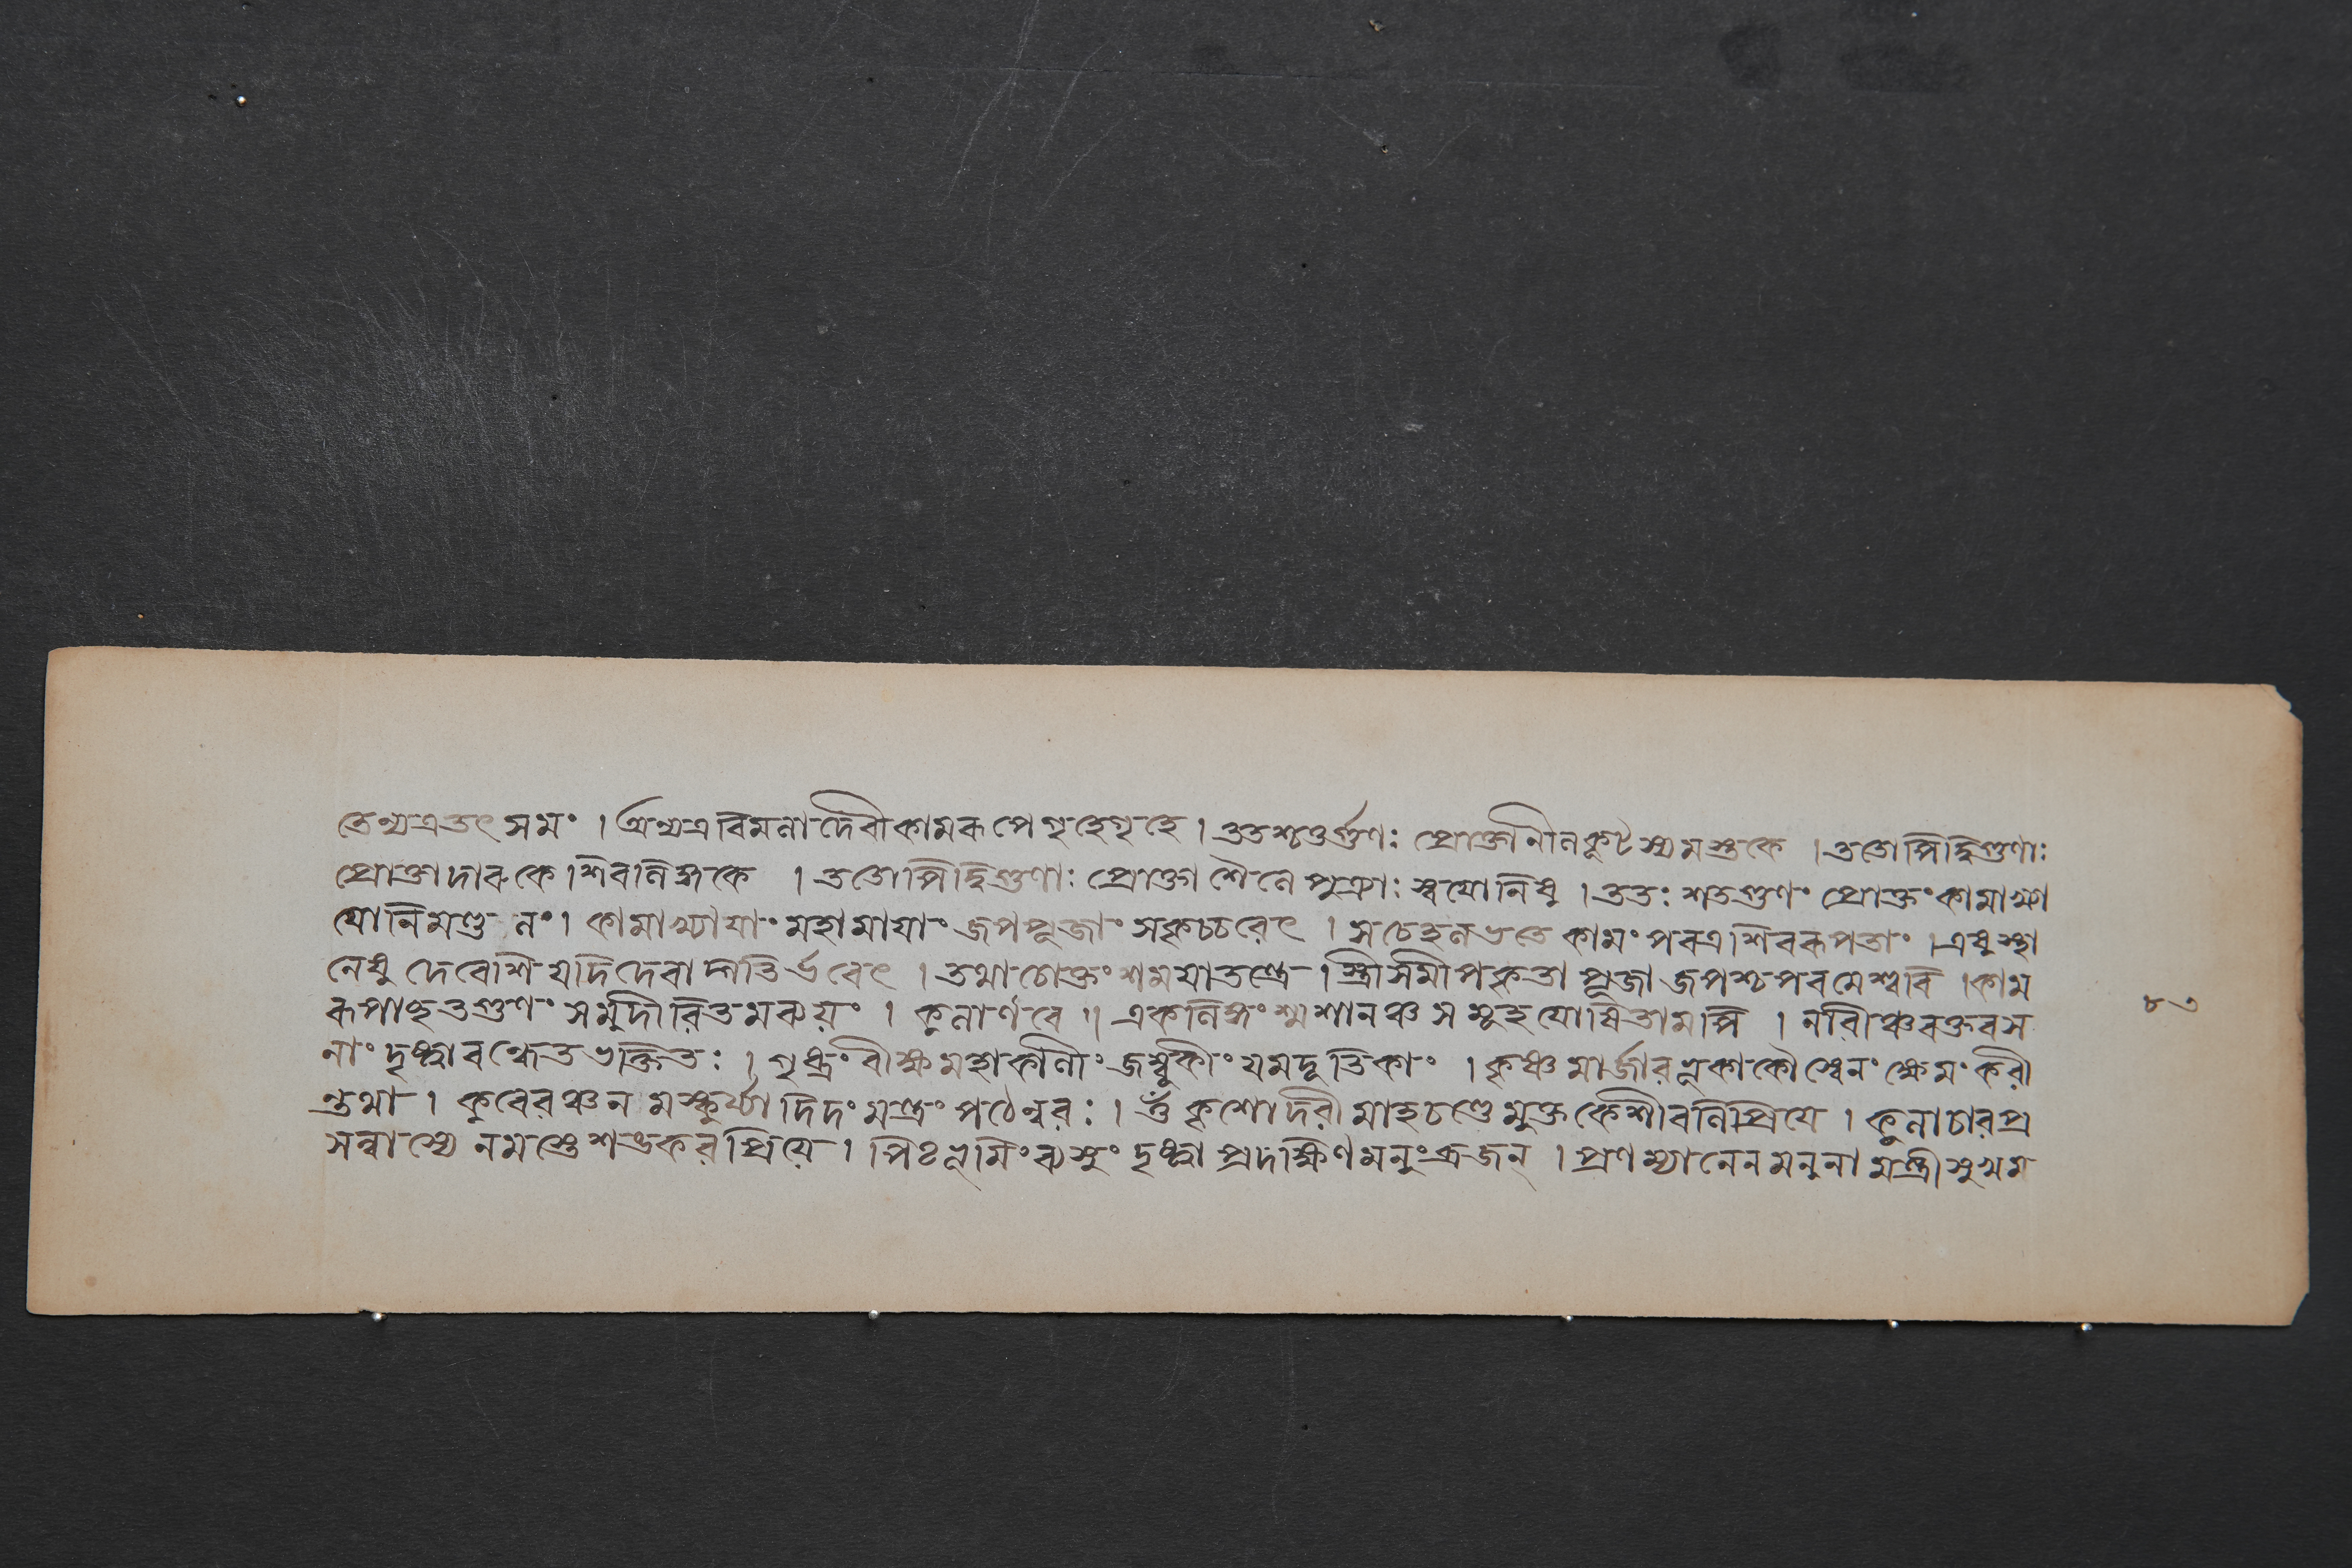 তেন্যত্রতৎসমং । অন্যত্রবিমলাদেবীকামৰূপেগৃহেগৃহে । ততশ্চতুর্গুণঃ প্রোক্তানীলকূটস্যমস্তকে । ততোপিদ্বিগুণাঃ
প্রোক্তাদাৰুকে শিবলিঙ্গকে । ততোপিদ্বিগুণাঃ প্রোক্তা শৈলে পুত্র্যাঃ স্বযোনিষু । ততঃ শতগুণং প্রোক্তং কামাখ্যা
যোনিমণ্ডলং । কামাখ্যাযাং মহামাযাং জপপূজাং সকৃচ্চৰেৎ । সচেহলভতে কামং পৰত্রশিবৰূপতাং । এষুস্থা
নেষু দেবেশি যদিদেবাদ্গতির্ভবেৎ । তথাচোক্তং শময়াতন্ত্রে । স্ত্রীসমীপেকৃতা পূজা জপশ্চপৰমেশ্বৰি । কাম
ৰূপাচ্ছতগুণং সমুদীৰিতমব্যয়ং । কুলার্ণবে ॥ একলিঙ্গং শ্মশানঞ্চ সমূহ যোষিতামপি । নাৰীঞ্চৰক্তবস
নাং দৃষ্ট্বাবন্দেতভক্তিতঃ । গৃধ্রং বীক্ষমহাকালীং জম্বুকীং যমদূতিকাং । কৃষ্ণমার্জাৰ কাকৌশ্যেনং ক্ষেমংকৰী
ন্তথা । কুবেৰঞ্চনমস্কুর্য্যাদিদং মন্ত্রং পঠেন্নৰঃ । ওঁ কৃশোদৰী মাহচণ্ডে মুক্তকেশীবলিপ্রিযে । কুলাচাৰপ্র
সন্নাস্যে নমস্তে শঙ্করপ্রিয়ে । দৃষ্ট্বা প্রদক্ষিণমনুংব্রজন্ । প্রণম্যানেনমনুনা মন্ত্রীসুখম
৮৩